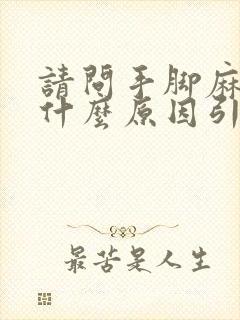 請問手脚麻
什麼原因引
最苦是人生